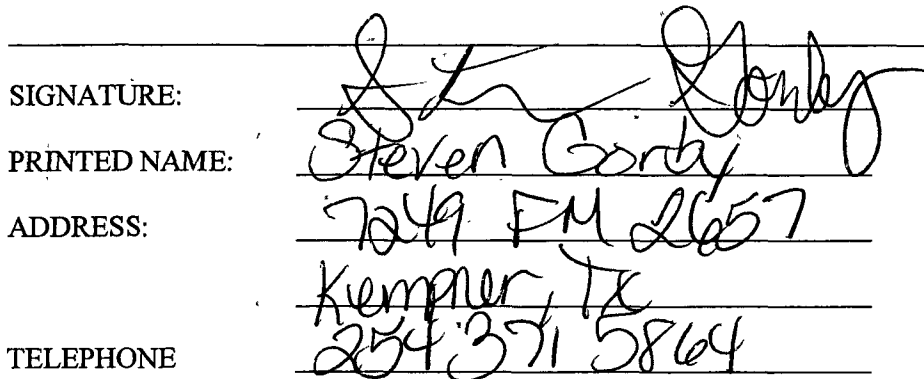 SIGNATURE: Steven Gordy
PRINTED NAME: Steven Gordy
ADDRESS: 7249 FM 2657
Kempner, Tx
TELEPHONE 254 371 5864